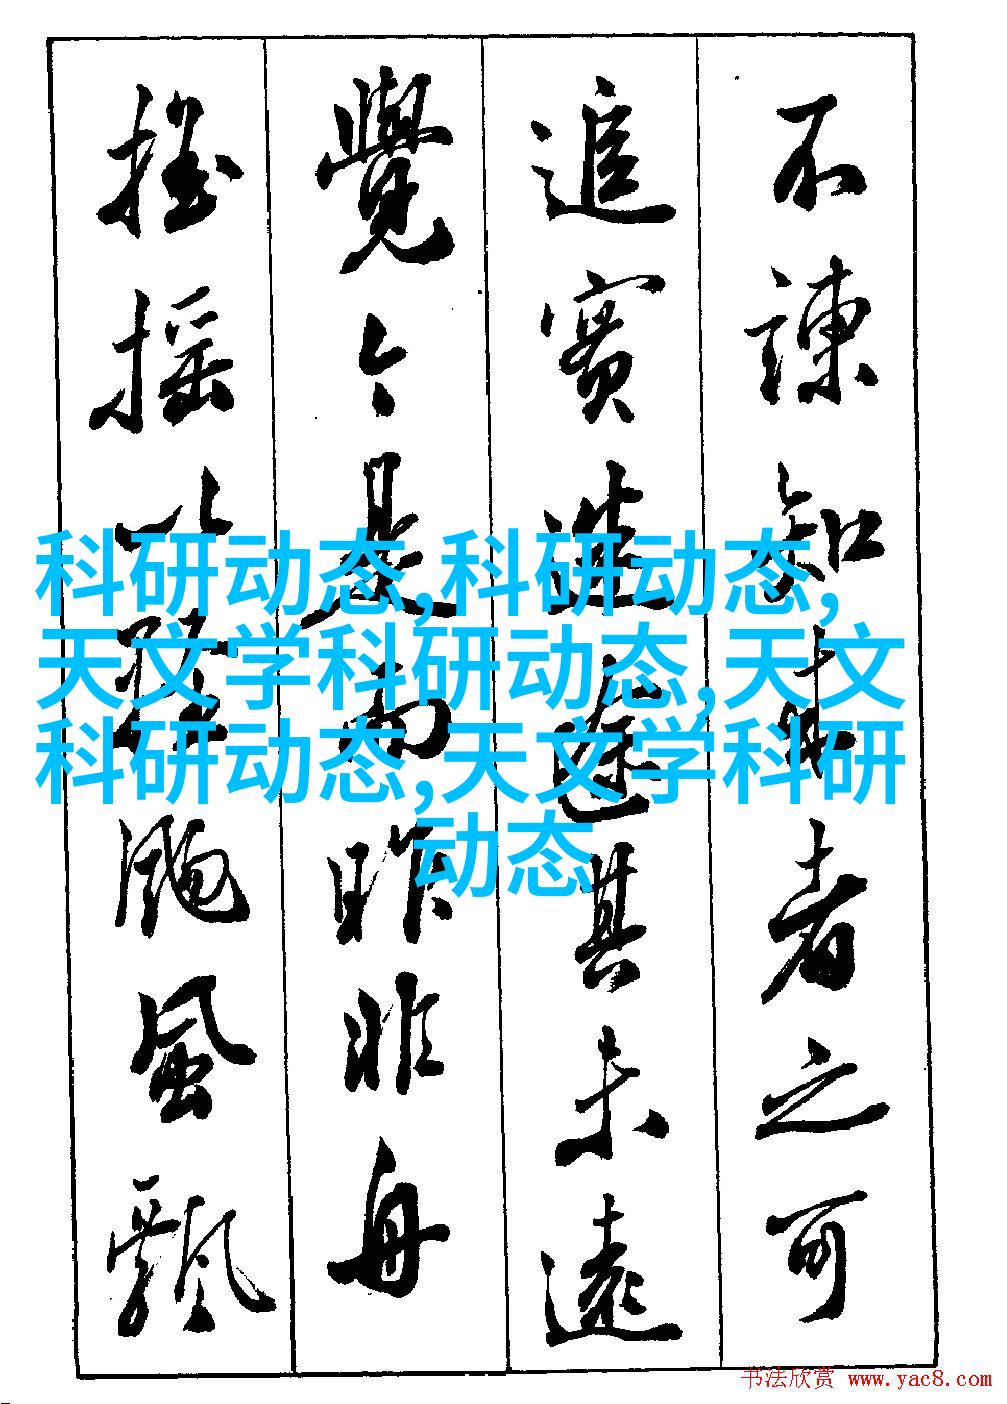 不諫知来者之可
追實迷途其未遠
覺今是而昨非舟
摇摇以輕颺風飄
科研动态,科研动态,
天文学科研动态,天文
科研动态,天文学科研
动态
书法欣赏 www.yac8.com